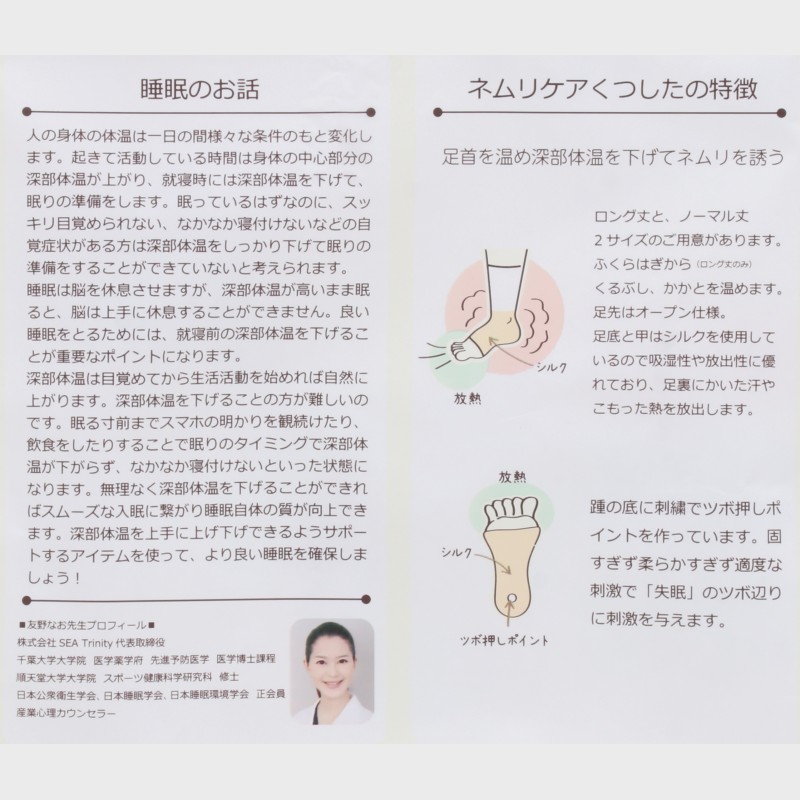 睡眠のお話
人の身体の体温は一日の間様々な条件のもと変化し
ます。起きて活動している時間は身体の中心部分の
深部体温が上がり、就寝時には深部体温を下げて、
眠りの準備をします。眠っているはずなのに、スッ
キリ目覚められない、なかなか寝付けないなどの自
覚症状がある方は深部体温をしっかり下げて眠りの
準備をすることができていないと考えられます。
睡眠は脳を休息させますが、深部体温が高いまま眠
ると、脳は上手に休息することができません。良い
睡眠をとるためには、就寝前の深部体温を下げるこ
とが重要なポイントになります。
深部体温は目覚めてから生活活動を始めれば自然に
上がります。深部体温を下げることの方が難しいので
す。眠る寸前までスマホの明かりを観続けたり、
飲食をしたりすることで眠りのタイミングで深部体
温が下がらず、なかなか寝付けないといった状態に
なります。無理なく深部体温を下げることができれ
ばスムーズな入眠に繋がり睡眠自体の質が向上でき
ます。深部体温を上手に上げ下げできるようサポー
トするアイテムを使って、より良い睡眠を確保しま
しょう！
■友野なお先生プロフィール■
株式会社 SEA Trinity 代表取締役
千葉大学大学院 医学薬学府 先進予防医学 医学博士課程
順天堂大学大学院 スポーツ健康科学研究科 修士
日本公衆衛生学会、日本睡眠学会、日本睡眠環境学会 正会員
産業心理カウンセラー
ネムリケアくつしたの特徴
足首を温め深部体温を下げてネムリを誘う
ロング丈と、ノーマル丈
2サイズのご用意があります。
ふくらはぎから（ロング丈のみ）
くるぶし、かかとを温めます。
足先はオープン仕様。
足底と甲はシルクを使用して
いるので吸湿性や放出性に優
れており、足裏にかいた汗や
こもった熱を放出します。
シルク
放熱
放熱
シルク
ツボ押しポイント
踵の底に刺繍でツボ押しポ
イントを作っています。固
すぎず柔らかすぎず適度な
刺激で「失眠」のツボ辺り
に刺激を与えます。